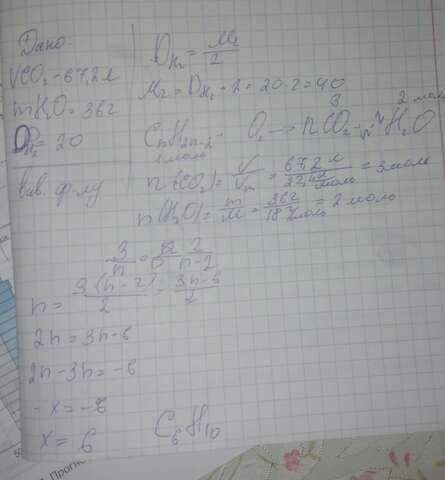 Дано:
VCO₂ = 67,2 л
mH₂O = 36 г
D_H₂ = 20
Вив. ф-лу
D_H₂ = Mr/2
Mr = D_H₂ · 2 = 20 · 2 = 40
3 2 моль
CnH2n-2 - O₂ → nCO₂ H₂O
1 моль
n(CO₂) = V/Vm = 67,2 л/22,4 л/моль = 3 моль
n(H₂O) = m/M = 36 г/18 г/моль = 2 моль
3/n = 2/n-2
n = 3(n-2)/2 = 3n-6/2
2n = 3n-6
2n-3n = -6
-x = -6
x = 6
C₆H₁₀
Прогноз